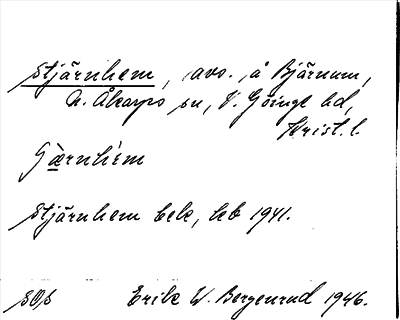 Stjärnhem, avs. å Bjärnum,
N. Åkarps sn, V. Göinge hd,
Krist. l.
Stjärnhem bek, heb 1941.
SOS Erik W. Bergenrud 1946.